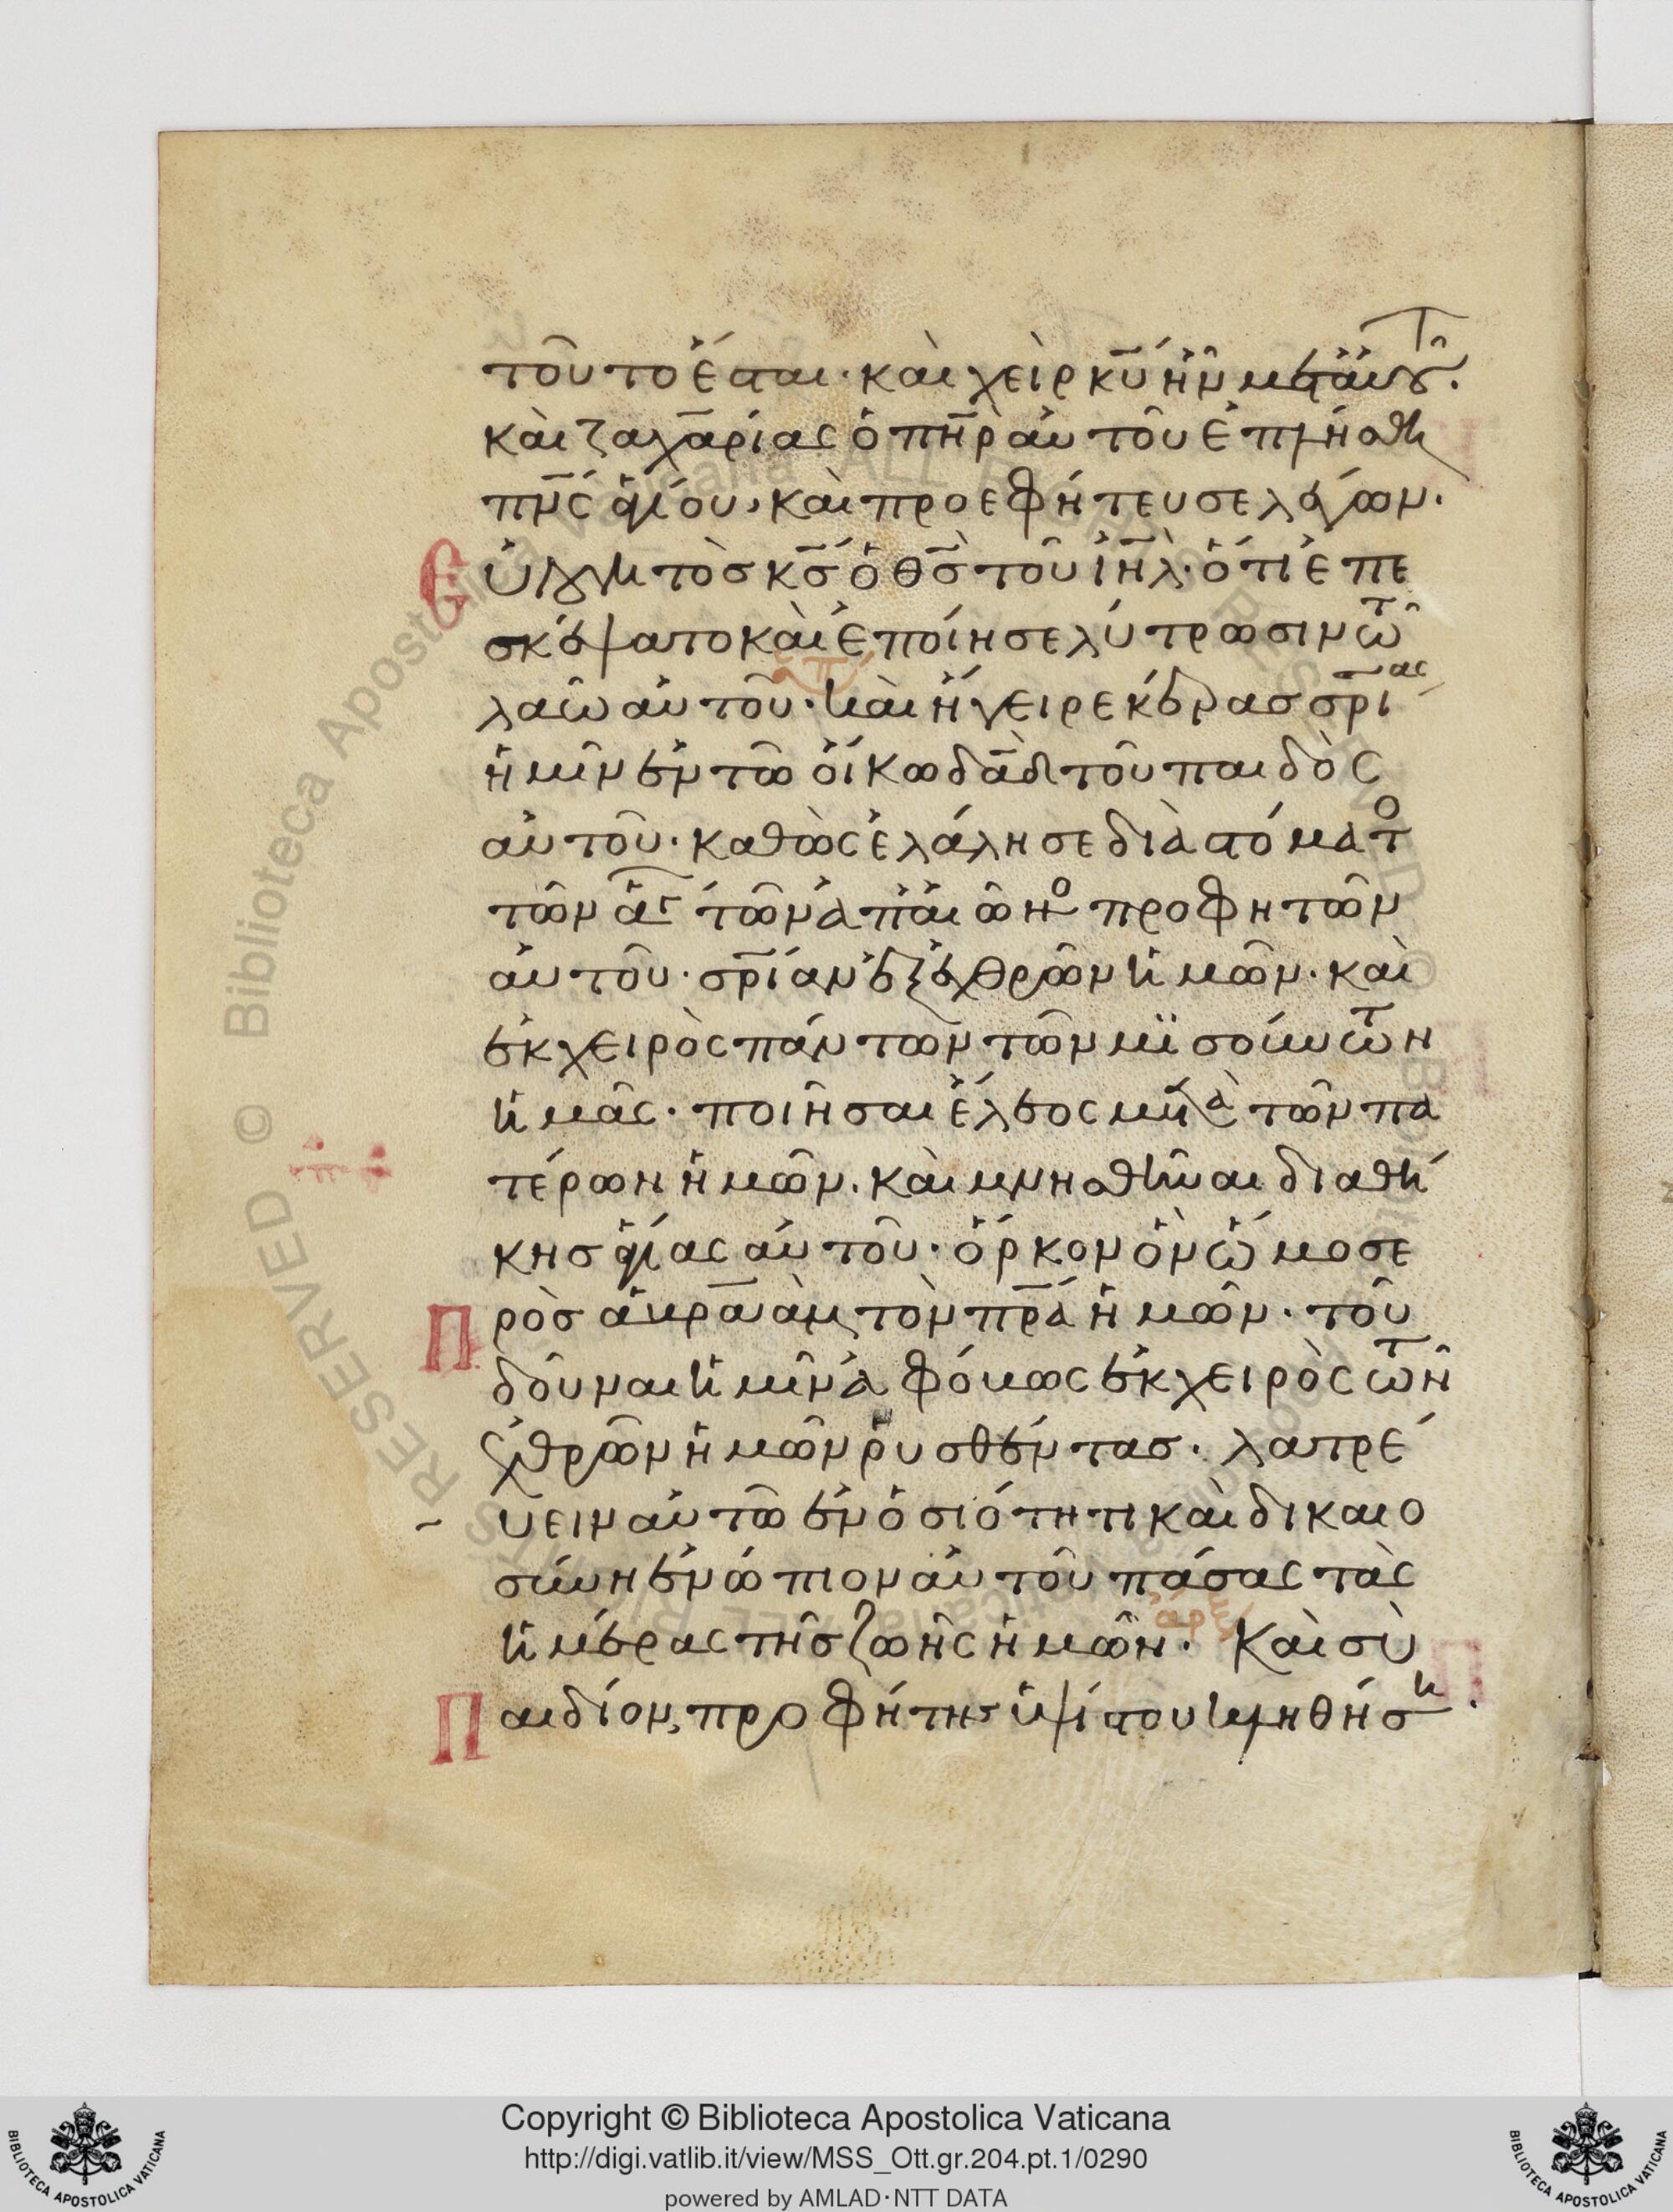 τοῦτο ἔσται· καὶ χεὶρ κ̅υ̅ ἦν μετ' αὐτοῦ.
καὶ ζαχαρίας ὁ π̅η̅ρ̅ αὐτοῦ ἐπλήσθη
π̅ν̅ς̅ ἁγίου, καὶ προεφήτευσε λέγων.
Εὐλογητὸσ κ̅σ̅ ὁ θ̅σ̅ τοῦ ἰ̅η̅λ̅· ὅτι ἐπε
σκέψατο καὶ ἐποίησε λύτρωσιν τῶ
λαῶ αὐτοῦ· καὶ ἤγειρε κέρασ σ̅ρ̅ι̅ας
ἡμῖν ἐν τῶ οἴκω δ̅α̅δ̅ τοῦ παιδὸς
αὐτοῦ· καθὼς ἐλάλησε διὰ στόματο
τῶν ἁγ τῶν ἀπ' αἰῶνο προφητῶν
αὐτοῦ· σ̅ρ̅ίαν ἐξ ἐχθρῶν ἡμῶν· καὶ
ἐκ χειρὸς πάντων τῶν μισούντων
ἡμᾶς· ποιῆσαι ἔλεος μετὰ τῶν πα
τέρων ἡμῶν· καὶ μνησθῆναι διαθή
κησ ἁγίας αὐτοῦ· ὅρκον ὃν ὤμοσε
Πρὸσ ἀβραὰμ, τὸν π̅ρ̅α̅ ἡμῶν· τοῦ
δοῦναι ἡμῖν ἀφόβως ἐκ χειρὸς τῶν
ἐχθρῶν ἡμῶν ῥυσθέντασ· λατρέ
υειν αὐτῶ ἐν ὁσιότητι καὶ δικαιο
σύνη ἐνώπιον αὐτοῦ πάσας τὰς
ἡμέρας τῆσ ζωῆς ἡμῶν· Καὶ σὺ
Παιδίον, προφήτης ὑψίστου κληθήση.
Copyright © Biblioteca Apostolica Vaticana
http://digi.vatlib.it/view/MSS_Ott.gr.204.pt.1/0290
powered by AMLAD·NTT DATA
BIBLIOTECA APOSTOLICA VATICANA
BIBLIOTECA APOSTOLICA VATICANA